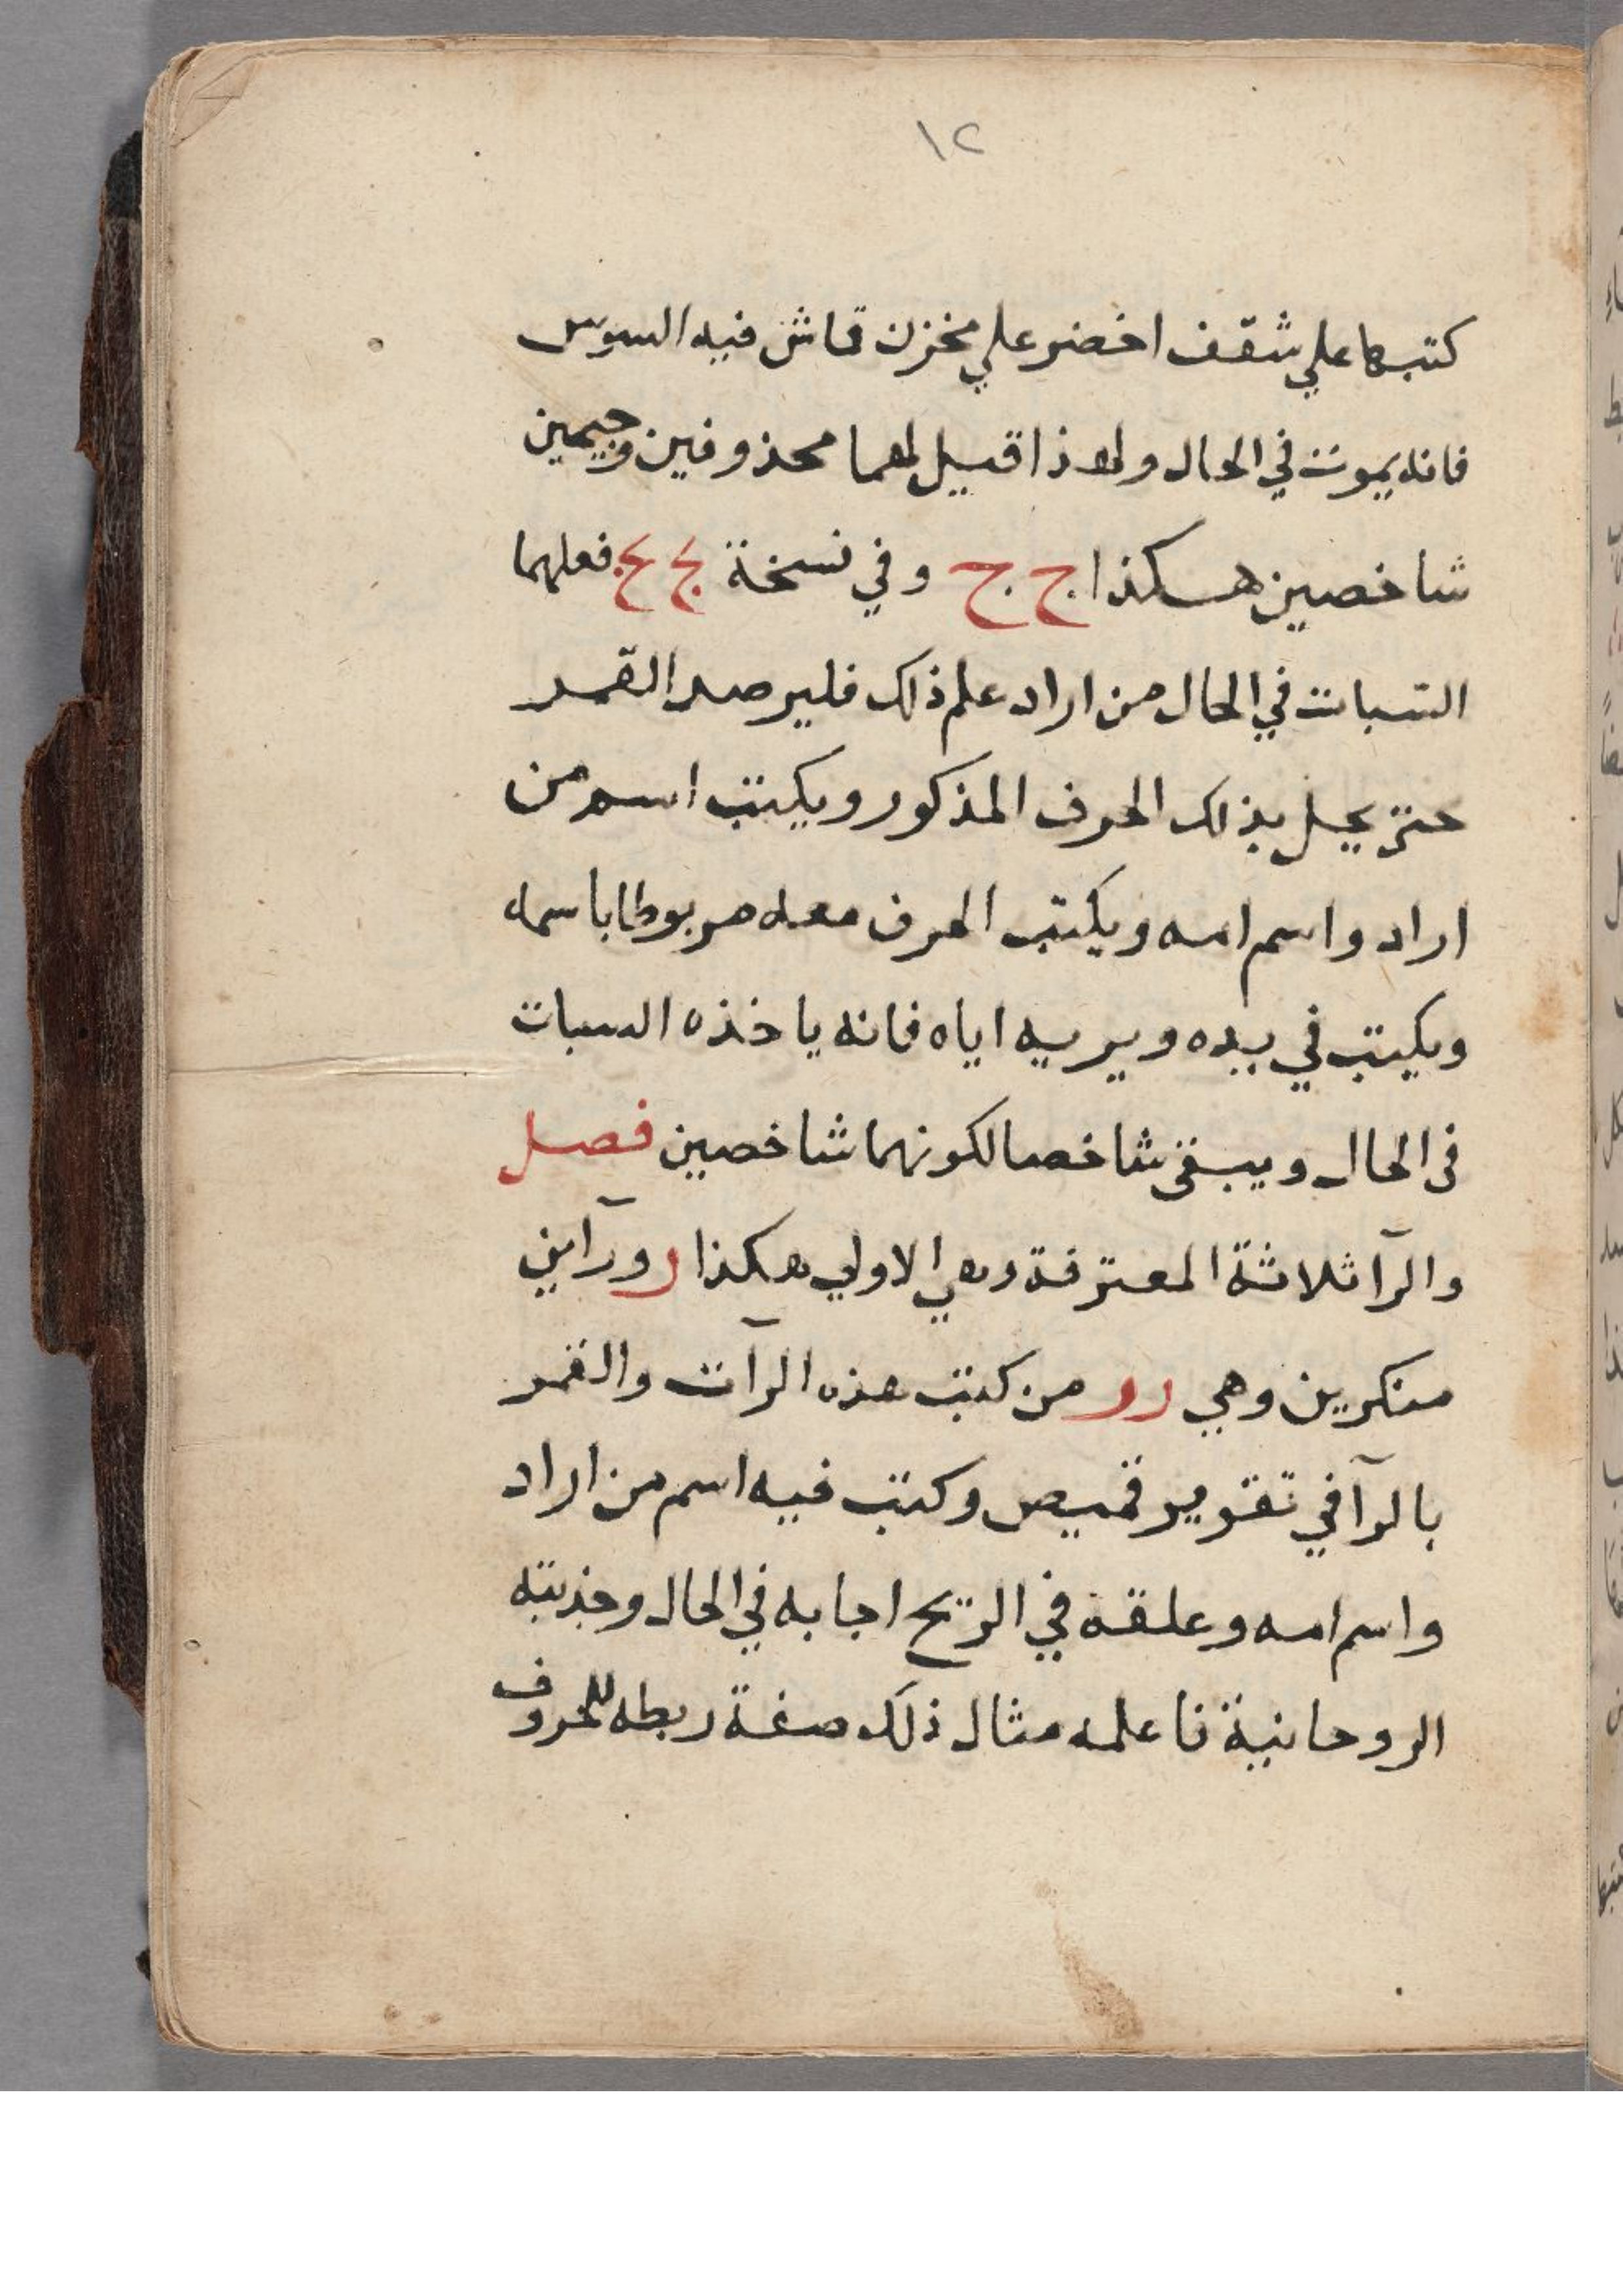 ١٢
كتبها علي شقف اخضر علي مخزن قماش فيه السوس
فانه يموت في الحال ولهذا قيل لهما محذوفين وجيمين
شاخصين هكذا ج ج وفي نسخة فعلهما
السبات في الحال من اراد علم ذلك فليرصد القمر
حتى يحل بذلك الحرف المذكور ويكتب اسم من
اراد واسم امه ويكتب الحرف معه مربوطا باسمه
ويكتب في يده ويريه اياه فانه ياخذه السبات
في الحال ويبقى شاخصا لكونهما شاخصين فصل
والرآ ثلاثة المعترفة وهي الاولي هكذا ر ورآين
منكرين وهي ر ر من كتب هذه الرآت والقمر
بالرآ في تقوير قميص وكتب فيه اسم من اراد
واسم امه وعلقه في الريح اجابه في الحال وجذبته
الروحانية فاعلمه مثال ذلك صفة ربطه للحروف